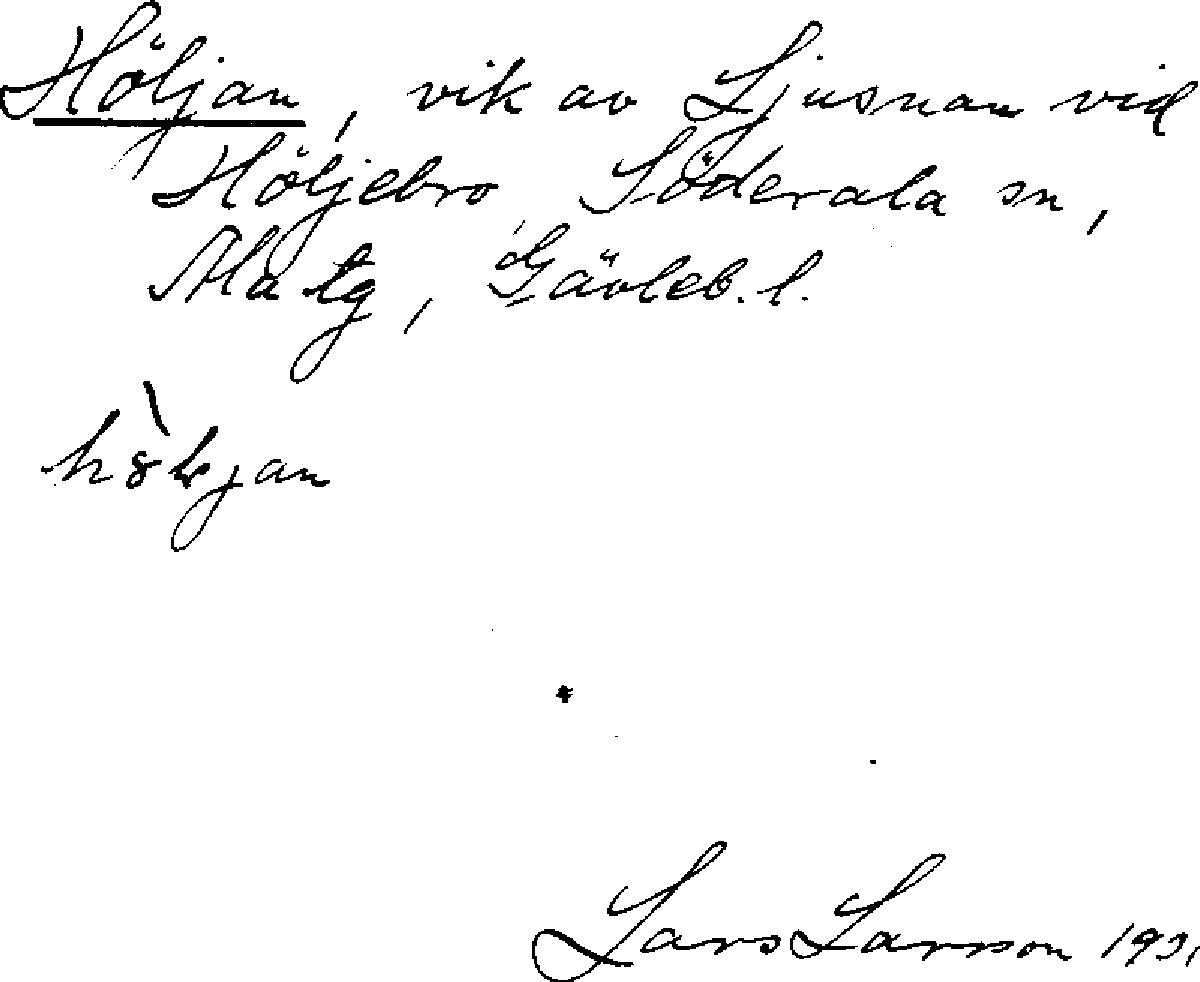 Höljan, vik av Ljusnan vid
Höljebro, Söderala sn,
Ala tg, Gävleb. l.
Lars Larsson 1931